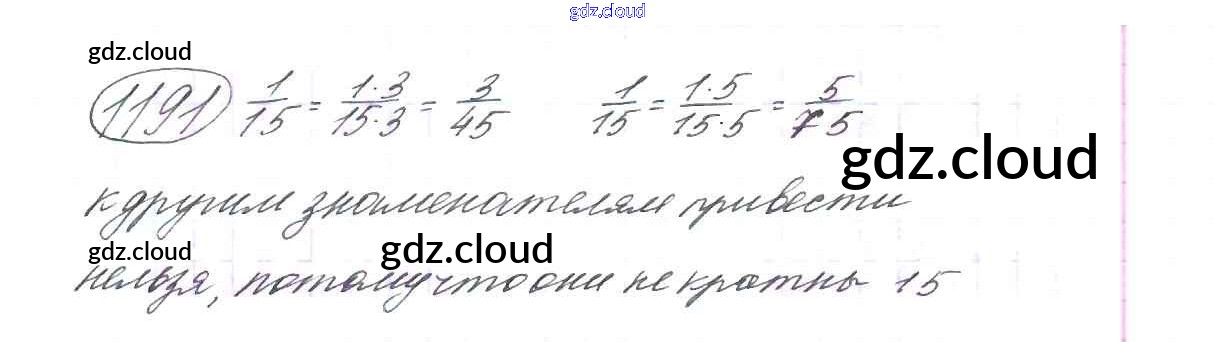 gdz.cloud
gdz.cloud
1191 1/15 = 1·3/15·3 = 3/45 1/15 = 1·5/15·5 = 5/75
gdz.cloud
к другим знаменателям привести
gdz.cloud gdz.cloud
нельзя, потому что они не кратны 15